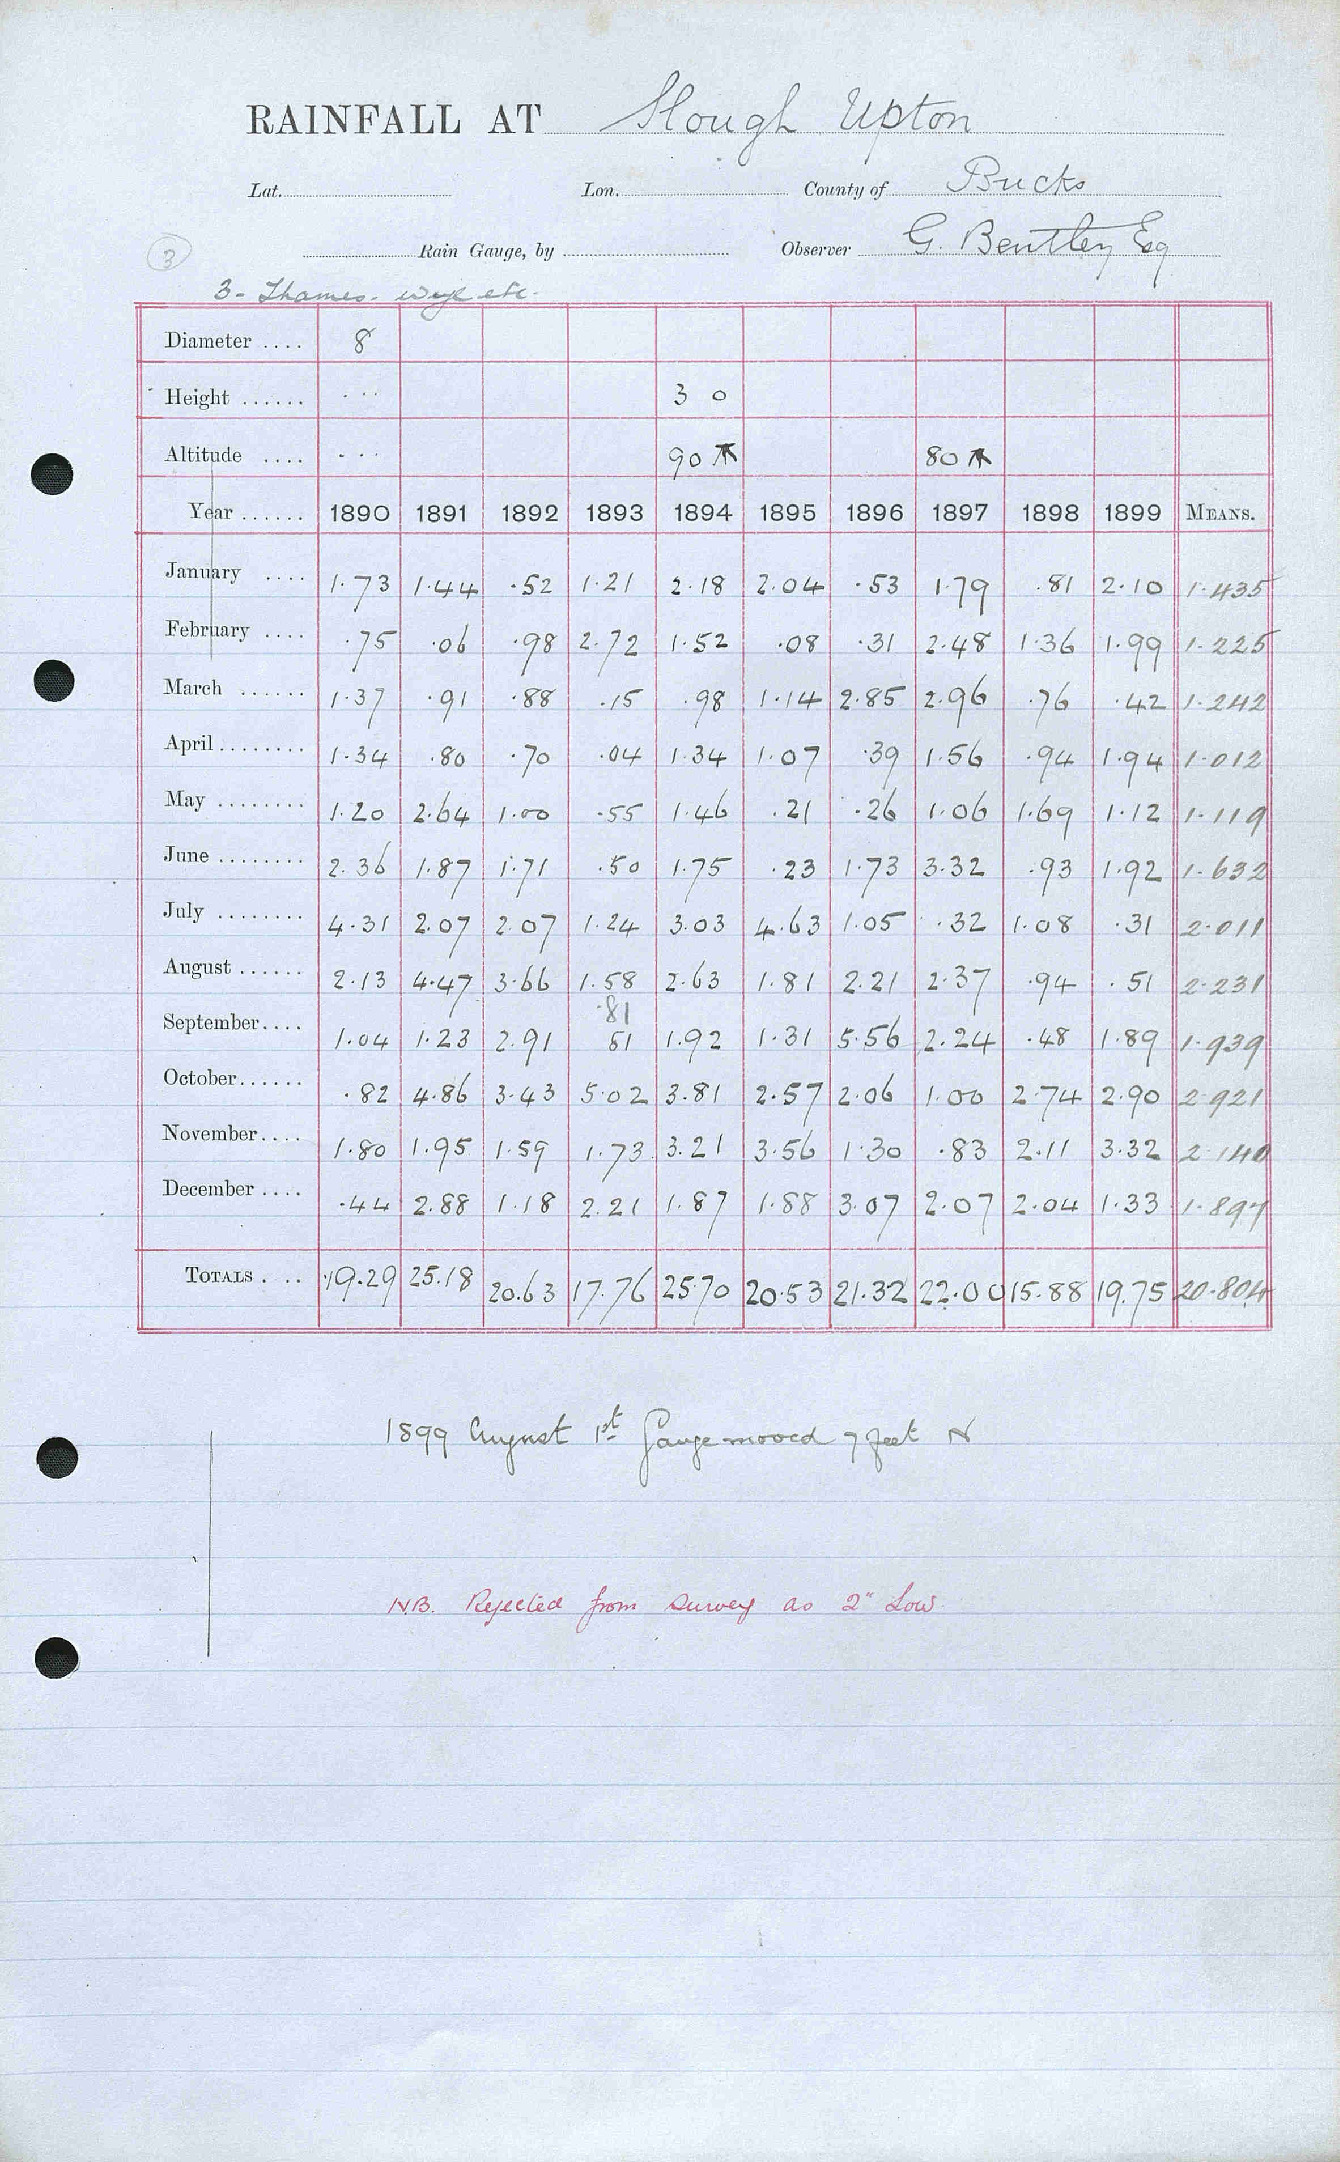 RAINFALL AT Slough Upton
Lat. Lon. County of Bucks
3 Rain Gauge, by Observer G. Bentley Esq
3 - Thames. Wye etc.
Diameter .... 8
Height ...... ... 3 0
Altitude .... ... 90 80
Year ...... 1890 1891 1892 1893 1894 1895 1896 1897 1898 1899 MEANS.
January .... 1.73 1.44 .52 1.21 2.18 2.04 .53 1.79 .81 2.10 1.435
February .... .75 .06 .98 2.72 1.52 .08 .31 2.48 1.36 1.99 1.225
March ...... 1.37 .91 .88 .15 .98 1.14 2.85 2.96 .76 .42 1.242
April ........ 1.34 .80 .70 .04 1.34 1.07 .39 1.56 .94 1.94 1.012
May ........ 1.20 2.64 1.00 .55 1.46 .21 .26 1.06 1.69 1.12 1.119
June ........ 2.36 1.87 1.71 .50 1.75 .23 1.73 3.32 .93 1.92 1.632
July ........ 4.31 2.07 2.07 1.24 3.03 4.63 1.05 .32 1.08 .31 2.011
August ...... 2.13 4.47 3.66 1.58 2.63 1.81 2.21 2.37 .94 .51 2.231
.81
September .... 1.04 1.23 2.91 81 1.92 1.31 5.56 2.24 .48 1.89 1.939
October ...... .82 4.86 3.43 5.02 3.81 2.57 2.06 1.00 2.74 2.90 2.921
November .... 1.80 1.95 1.59 1.73 3.21 3.56 1.30 .83 2.11 3.32 2.140
December .... .44 2.88 1.18 2.21 1.87 1.88 3.07 2.07 2.04 1.33 1.897
TOTALS . .. 19.29 25.18 20.63 17.76 25.70 20.53 21.32 22.00 15.88 19.75 20.804
1899 August 1st Gauge moved 7 feet N
N.B. Rejected from Survey as 2" Low